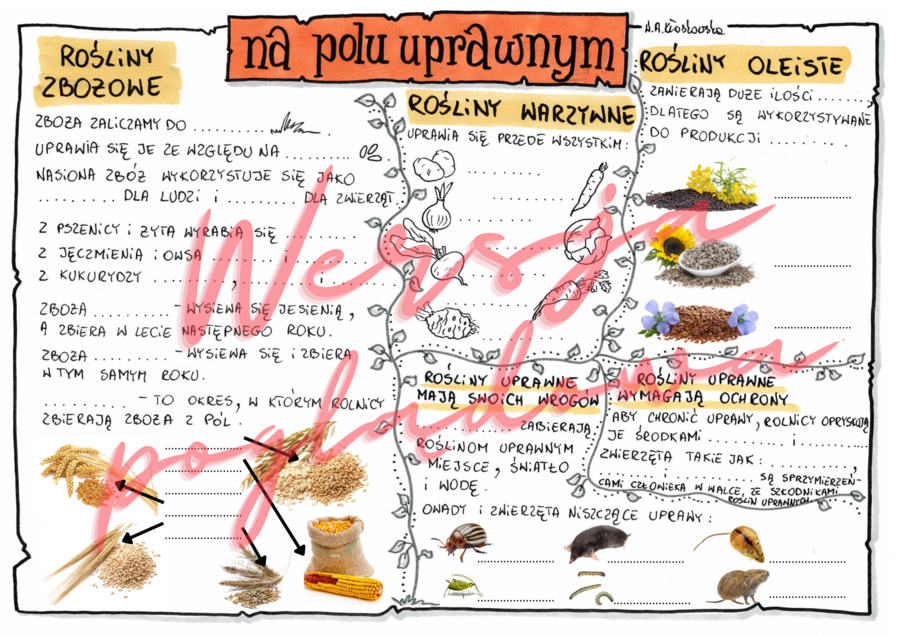 na polu uprawnym
ROŚLINY
ZBOŻOWE
ZBOŻA ZALICZAMY DO ..........
UPRAWIA SIĘ JE ZE WZGLĘDU NA .........
NASIONA ZBÓŻ WYKORZYSTUJE SIĘ JAKO
.......... DLA LUDZI I .......... DLA ZWIERZĄT
Z PSZENICY I ŻYTA WYRABIA SIĘ ..........
Z JĘCZMIENIA I OWSA .......... I ..........
Z KUKURYDZY .......... , ..........
ZBOŻA .......... - WYSIEWA SIĘ JESIENIĄ,
A ZBIERA W LECIE NASTĘPNEGO ROKU.
ZBOŻA .......... - WYSIEWA SIĘ I ZBIERA
W TYM SAMYM ROKU.
.......... - TO OKRES, W KTÓRYM ROLNICY
ZBIERAJĄ ZBOŻA Z PÓL.
ROŚLINY WARZYWNE
UPRAWIA SIĘ PRZEDE WSZYSTKIM:
ROŚLINY OLEISTE
ZAWIERAJĄ DUŻE ILOŚCI .......,
DLATEGO SĄ WYKORZYSTYWANE
DO PRODUKCJI ........
ROŚLINY UPRAWNE
MAJĄ SWOICH WROGÓW
.......... ZABIERAJĄ
ROŚLINOM UPRAWNYM
MIEJSCE, ŚWIATŁO
I WODĘ.
OWADY I ZWIERZĘTA NISZCZĄCE UPRAWY:
ROŚLINY UPRAWNE
WYMAGAJĄ OCHRONY
ABY CHRONIĆ UPRAWY, ROLNICY OPRYSKUJĄ
JE ŚRODKAMI .......... I ..........
ZWIERZĘTA TAKIE JAK: ..........,
.......... I .......... SĄ SPRZYMIERZEŃ-
CAMI CZŁOWIEKA W WALCE, ZE SZKODNIKAMI
ROŚLIN UPRAWNYCH
Wersja
poglądowa